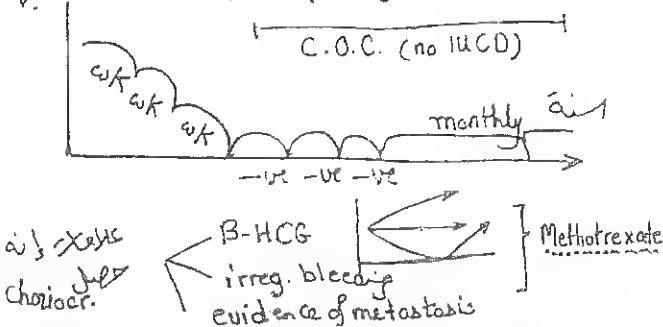 C.O.C. (no IUCD)
wk
wk
wk
monthly
سنة
-ve -ve -ve
علامات إنه
حصل
Choriocr.
B-HCG
irreg. bleeding
evidence of metastasis
Methotrexate